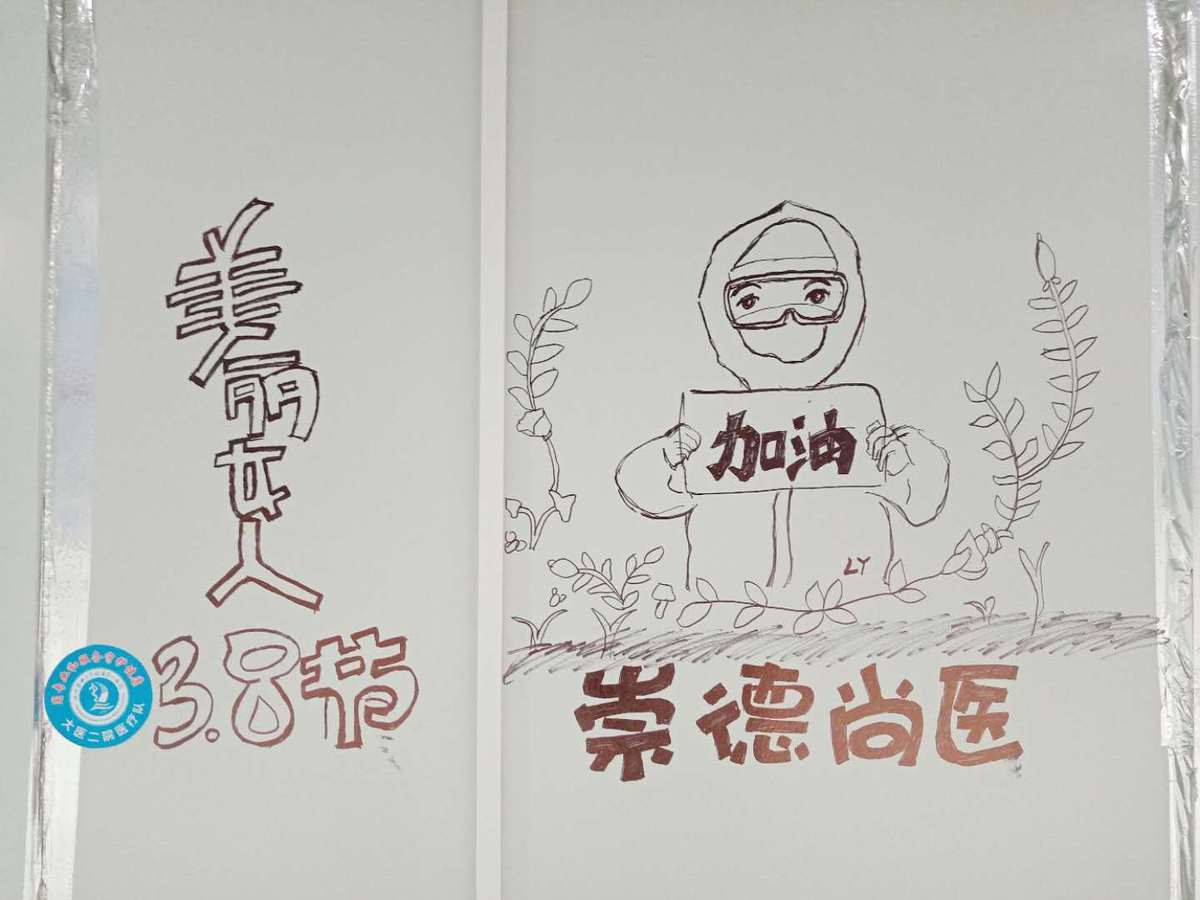 美丽女人
3.8节
大医二院医疗队
加油
LY
崇德尚医